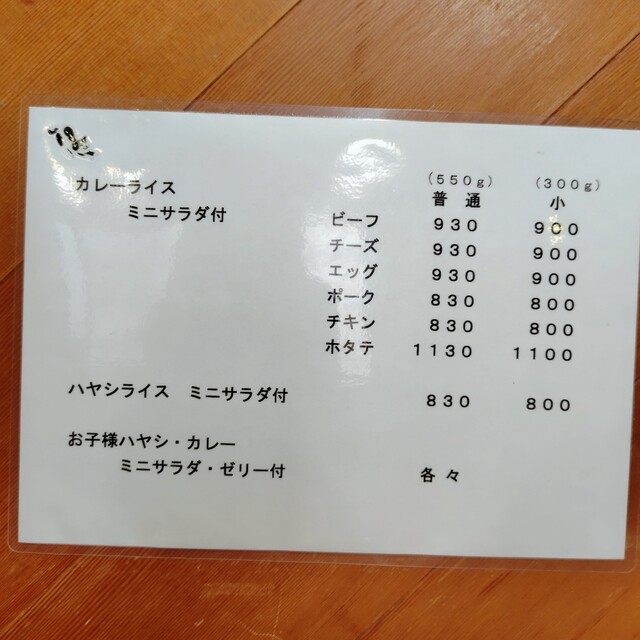 (550g) (300g)
カレーライス 普通 小
ミニサラダ付
ビーフ 930 900
チーズ 930 900
エッグ 930 900
ポーク 830 800
チキン 830 800
ホタテ 1130 1100
ハヤシライス ミニサラダ付 830 800
お子様ハヤシ・カレー
ミニサラダ・ゼリー付 各々